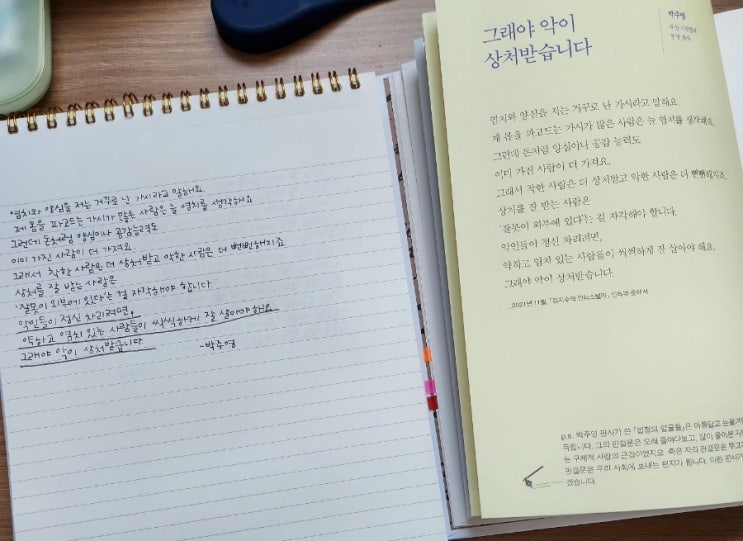 염치와 양심을 저는 거꾸로 난 가시라고 말해요.
제 몸을 파고드는 가시가 많은 사람은 늘 염치를 생각해요
그런데 돈처럼 양심이나 공감능력도
이미 가진 사람이 더 가져요.
그래서 착한 사람은 더 상처받고 악한 사람은 더 뻔뻔해지죠
상처를 잘 받는 사람은
'잘못이 외부에 있다'는 걸 자각해야 합니다
악인들이 정신 차리려면,
약하고 염치 있는 사람들이 씩씩하게 잘 살아야 해요
그래야 악이 상처받습니다
-박주영
그래야 악이
상처받습니다
박주영
염치와 양심을 저는 거꾸로 난 가시라고 말해요
제 몸을 파고드는 가시가 많은 사람은 늘 염치를 생각해요
그런데 돈처럼 양심이나 공감 능력도
이미 가진 사람이 더 가져요.
그래서 착한 사람은 더 상처받고 악한 사람은 더 뻔뻔해지죠
상처를 잘 받는 사람은
'잘못이 외부에 있다'는 걸 자각해야 합니다.
악인들이 정신 차리려면,
약하고 염치 있는 사람들이 씩씩하게 잘 살아야 해요.
그래야 악이 상처받습니다.
_2021년 11월, 「김지수의 인터스텔라」 인터뷰 중에서
p.s. 박주영 판사가 쓴 「법정의 얼굴들」은 아름답고 눈물겨
득합니다. 그의 판결문은 오래 들여다보고, 많이 울어본 자
는 구체적 사랑의 근경이었지요. 죽은 자의 판결문은 부고
판결문은 우리 사회에 보내는 편지가 됩니다. 이런 판사가
겠습니다.